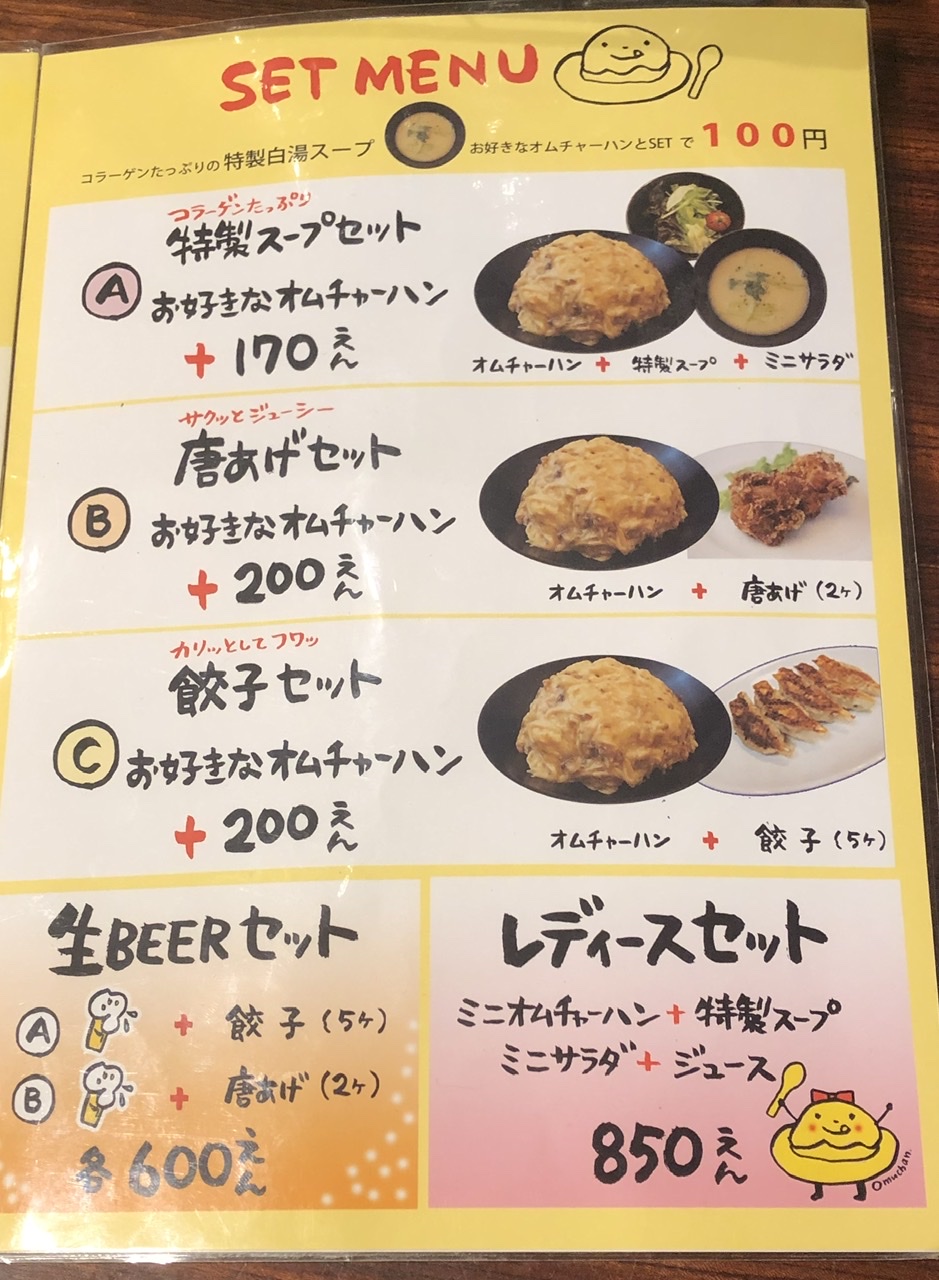 SET MENU
コラーゲンたっぷりの 特製白湯スープ お好きなオムチャーハンとSET で 100円
コラーゲンたっぷり
特製スープセット
A お好きなオムチャーハン
+ 170えん
オムチャーハン + 特製スープ + ミニサラダ
サクッとジューシー
唐あげセット
B お好きなオムチャーハン
+ 200えん
オムチャーハン + 唐あげ(2ヶ)
カリッとしてフワッ
餃子セット
C お好きなオムチャーハン
+ 200えん
オムチャーハン + 餃子(5ヶ)
生BEERセット
A + 餃子(5ヶ)
B + 唐あげ(2ヶ)
各600えん
レディースセット
ミニオムチャーハン+特製スープ
ミニサラダ+ジュース
850えん
Omuchan.